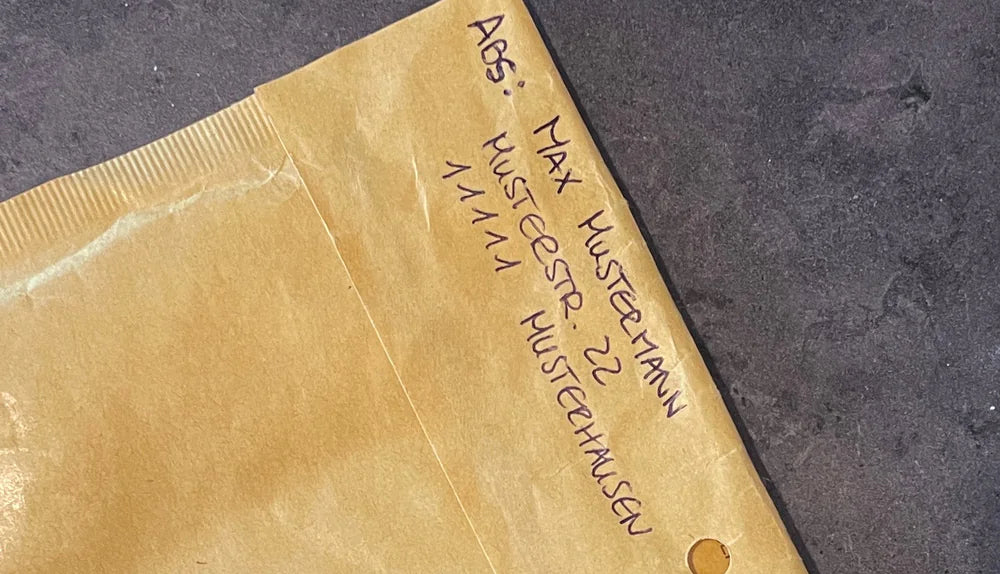 ABS: MAX MUSTERMANN
MUSTERSTR. 22
11111 MUSTERHAUSEN